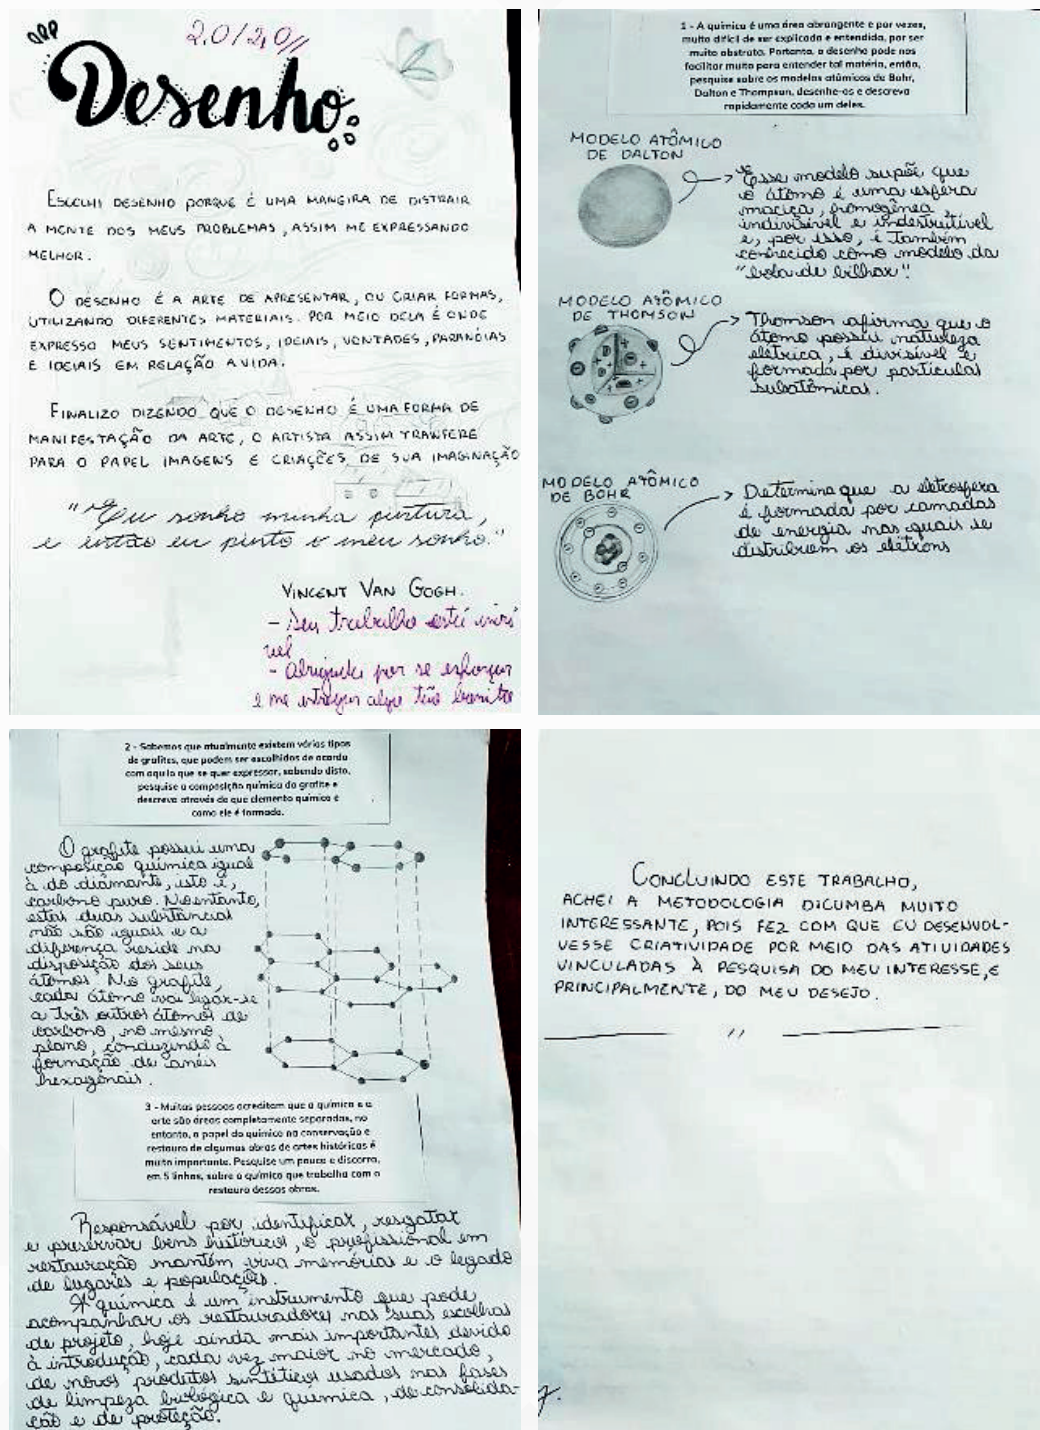 2,0/2,0//
Desenho
ESCOLHI DESENHO PORQUE É UMA MANEIRA DE DISTRAIR
A MENTE DOS MEUS PROBLEMAS, ASSIM ME EXPRESSANDO
MELHOR.
O DESENHO É A ARTE DE APRESENTAR, OU CRIAR FORMAS,
UTILIZANDO DIFERENTES MATERIAIS. POR MEIO DELA É ONDE
EXPRESSO MEUS SENTIMENTOS, IDEIAIS, VONTADES, PARANÓIAS
E IDEIAIS EM RELAÇÃO A VIDA.
FINALIZO DIZENDO QUE O DESENHO É UMA FORMA DE
MANIFESTAÇÃO DA ARTE, O ARTISTA ASSIM TRANFERE
PARA O PAPEL IMAGENS E CRIAÇÕES DE SUA IMAGINAÇÃO
"Eu sonho minha pintura,
e então eu pinto o meu sonho."
VINCENT VAN GOGH.
- Seu trabalho está incrí
vel
- Obrigada por se esforçar
e me entregar algo tão bonito
1 - A química é uma área abrangente e por vezes,
muito difícil de ser explicada e entendida, por ser
muito abstrata. Portanto, o desenho pode nos
facilitar muito para entender tal matéria, então,
pesquise sobre os modelos atômicos de Bohr,
Dalton e Thompson, desenhe-os e descreva
rapidamente cada um deles.
MODELO ATÔMICO
DE DALTON
Esse modelo supõe que
o átomo é uma esfera
maciça, homogênea,
indivisível e indestrutível
e, por isso, é também
conhecido como modelo da
"bola de bilhar".
MODELO ATÔMICO
DE THOMSON
Thomson afirma que o
átomo possui natureza
elétrica, é divisível e
formada por partículas
subatômicas.
MODELO ATÔMICO
DE BOHR
Determina que a eletrosfera
é formada por camadas
de energia nas quais se
distribuem os elétrons
2 - Sabemos que atualmente existem vários tipos
de grafites, que podem ser escolhidos de acordo
com aquilo que se quer expressar, sabendo disto,
pesquise a composição química do grafite e
descreva através de que elemento químico é
como ele é formado.
O grafite possui uma
composição química igual
à do diamante, isto é,
carbono puro. No entanto,
estas duas substâncias
não são iguais e a
diferença reside na
disposição dos seus
átomos. No grafite,
cada átomo vai ligar-se
a três outros átomos de
carbono, no mesmo
plano, conduzindo à
formação de anéis
hexagonais.
3 - Muitas pessoas acreditam que a química e a
arte são áreas completamente separadas, no
entanto, o papel do químico na conservação e
restauro de algumas obras de artes históricas é
muito importante. Pesquise um pouco e discorra,
em 5 linhas, sobre o químico que trabalha com o
restauro dessas obras.
Responsável por identificar, resgatar
e preservar bens históricos, o profissional em
restauração mantém viva memórias e o legado
de lugares e populações.
A química é um instrumento que pode
acompanhar os restauradores nas suas escolhas
de projeto, hoje ainda mais importantes devido
à introdução, cada vez maior no mercado,
de novos produtos sintéticos usados nas fases
de limpeza biológica e química, de consolida-
ção e de proteção.
CONCLUINDO ESTE TRABALHO,
ACHEI A METODOLOGIA DICUMBA MUITO
INTERESSANTE, POIS FEZ COM QUE EU DESENVOL-
VESSE CRIATIVIDADE POR MEIO DAS ATIVIDADES
VINCULADAS À PESQUISA DO MEU INTERESSE, E
PRINCIPALMENTE, DO MEU DESEJO.